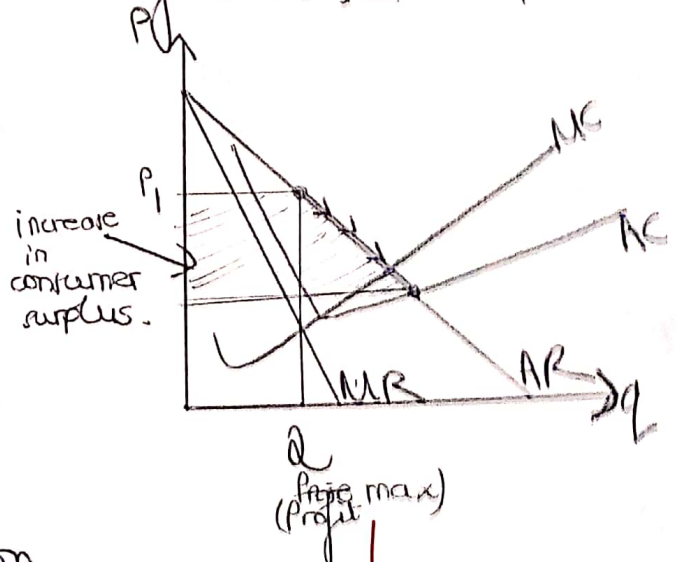 P
MC
P1
AC
increase
in
consumer
surplus.
MR
AR
q
Q
(Profit max)